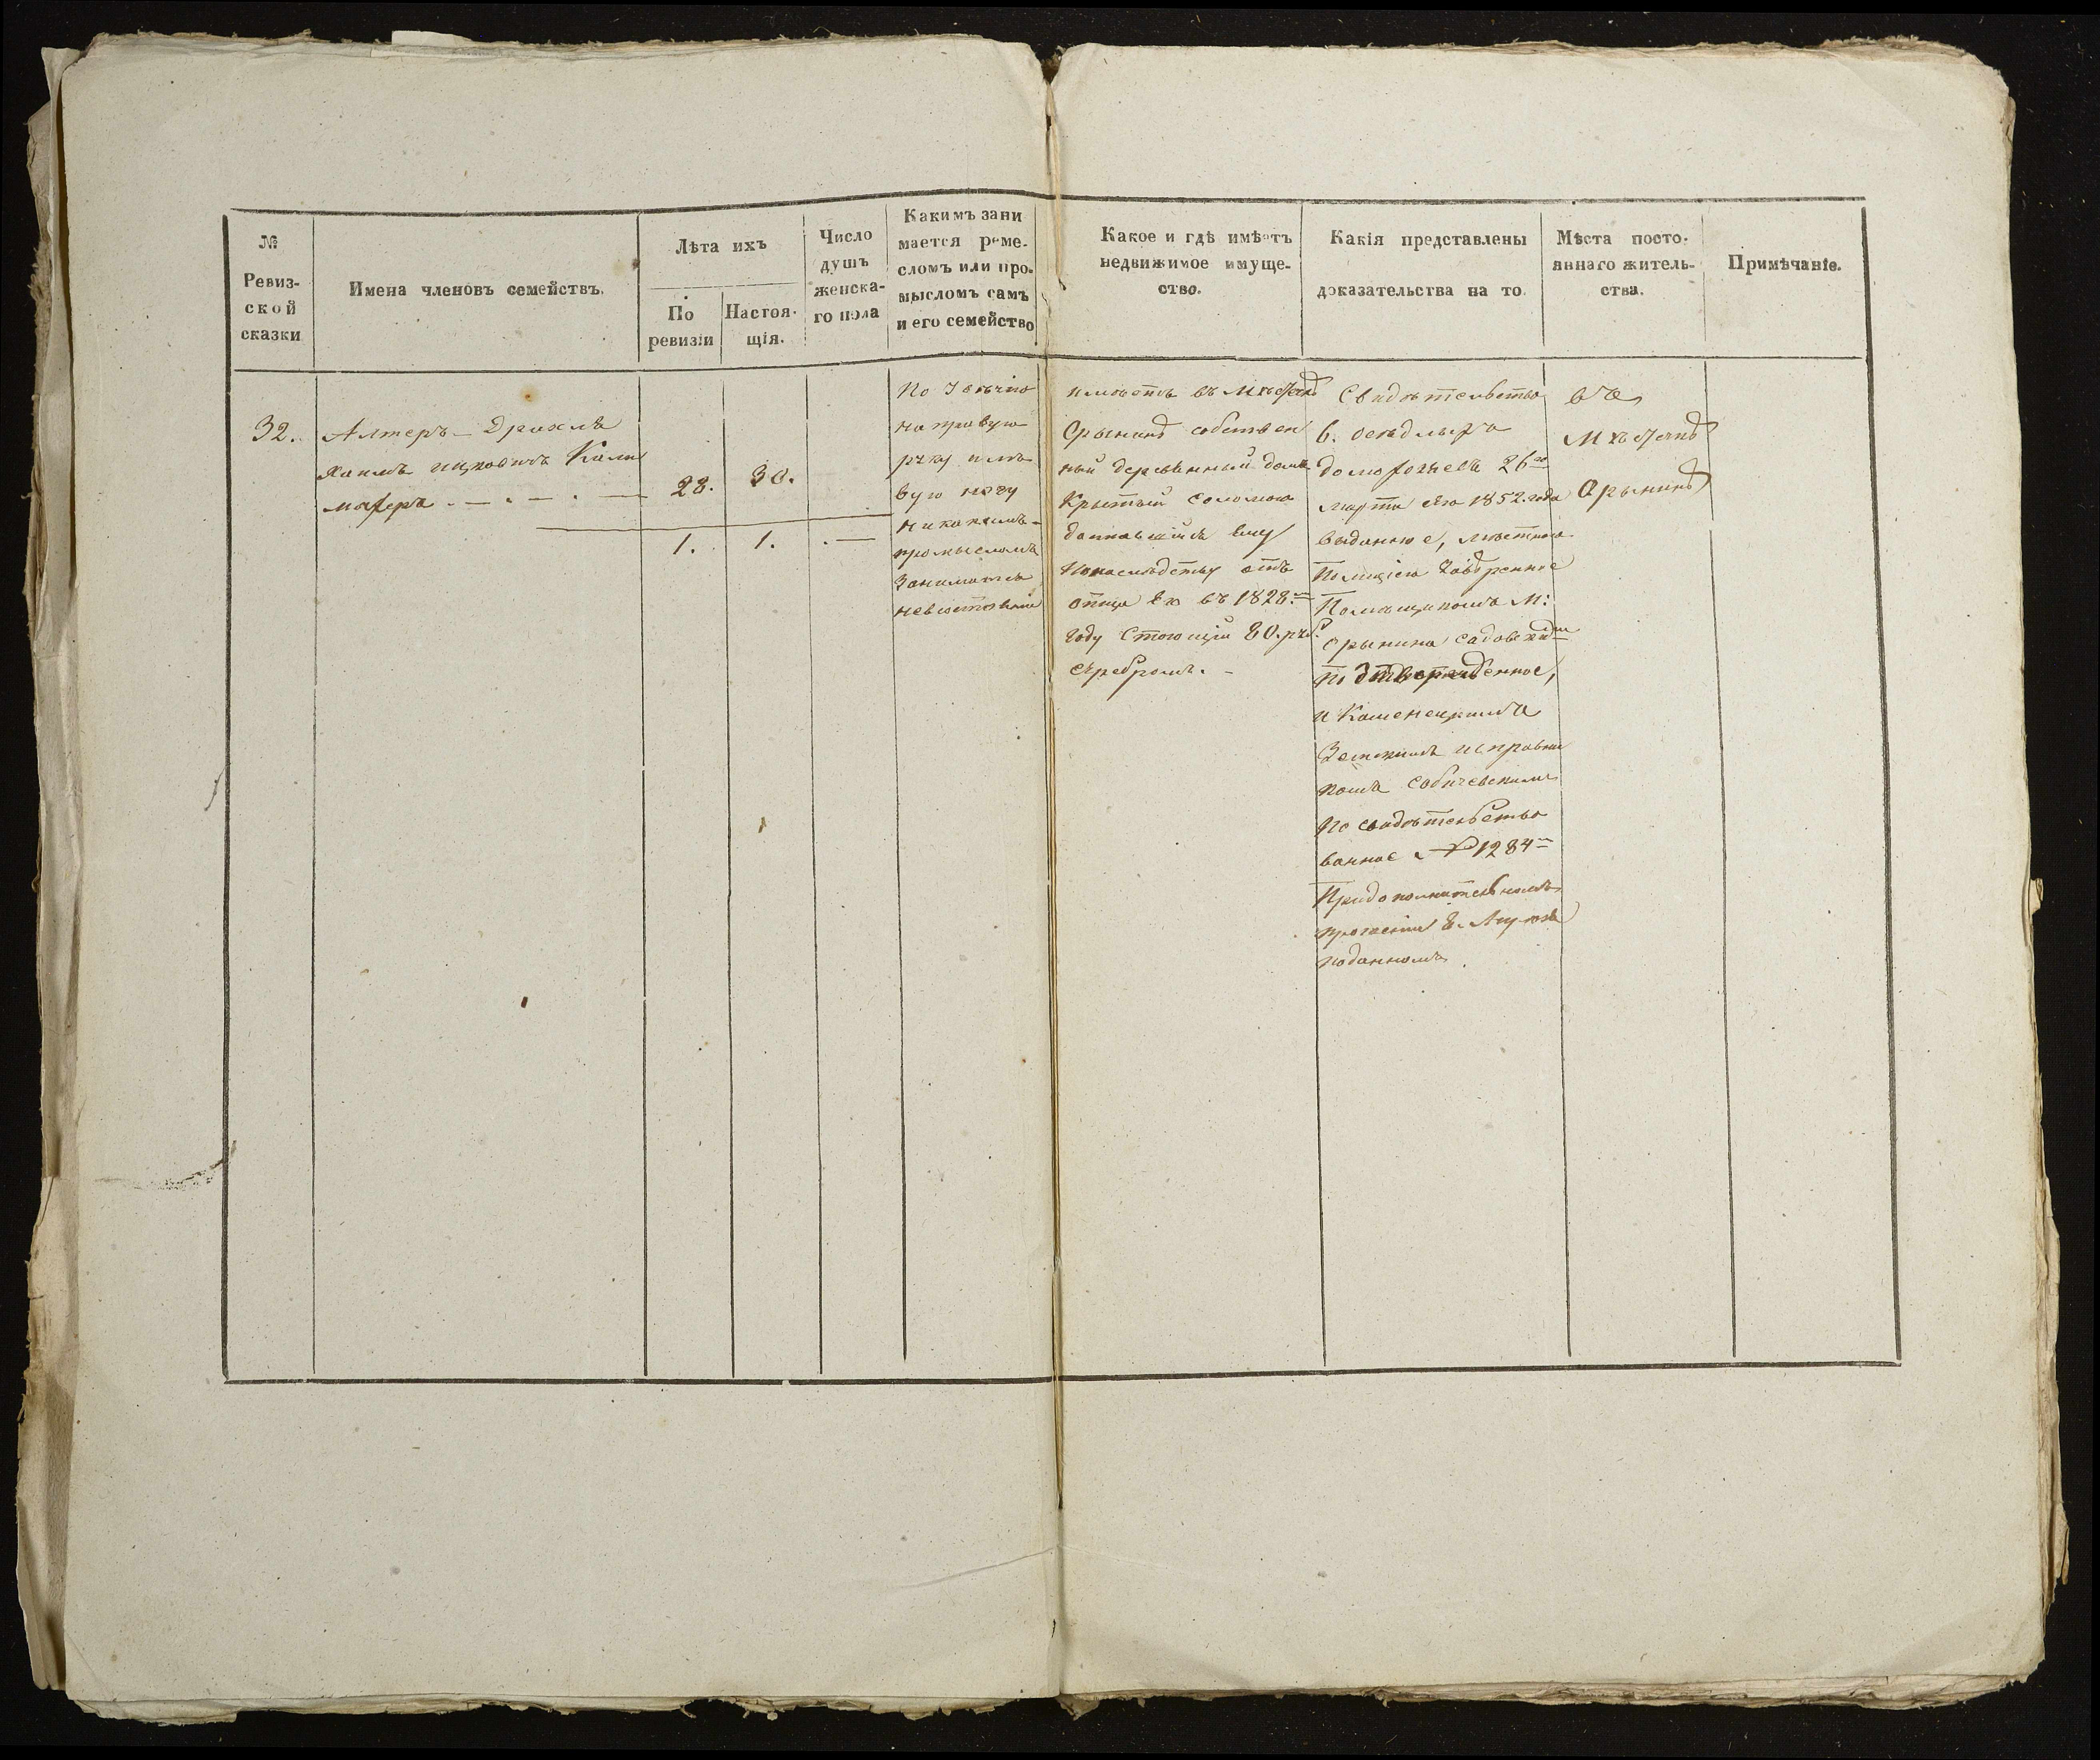 №
Ревиз-
ской
сказки
Имена членовъ семействъ.
Лѣта ихъ
По
ревизіи
Настоя-
щія.
Число
душъ
женска-
го пола
Какимъ зани
мается реме-
сломъ или про-
мысломъ самъ
и его семейство
Какое и гдѣ имѣетъ
недвижимое имуще-
ство.
Какія представлены
доказательства на то.
Мѣста посто-
яннаго житель-
ства.
Примѣчаніе.
32.
Алтеръ-Драхлъ
Хаимъ Ицковичъ
28. 30.
1. 1. —
По
на правую
руку и лѣ
вую ногу
никакимъ
промысломъ
заниматься
невсостояніи
имѣетъ въ Мѣстечкѣ
Орынинѣ собствен
ный деревянный домъ
крытый соломою
доставшійся ему
понаслѣдству отъ
отца его въ 1828.
году стоющій 80. руб.
серебромъ. -
Свидѣтельство
6.
26
марта сего 1852. года
выданное, мѣстною
Полиціею
Помѣщикомъ М:
Орынина
и Каменецкимъ
Земскимъ исправни
комъ
по свидѣтельство
ванное № 1284
При дополнительномъ
прошеніи 8.
поданномъ
въ
Мѣстечкѣ
Орынинѣ